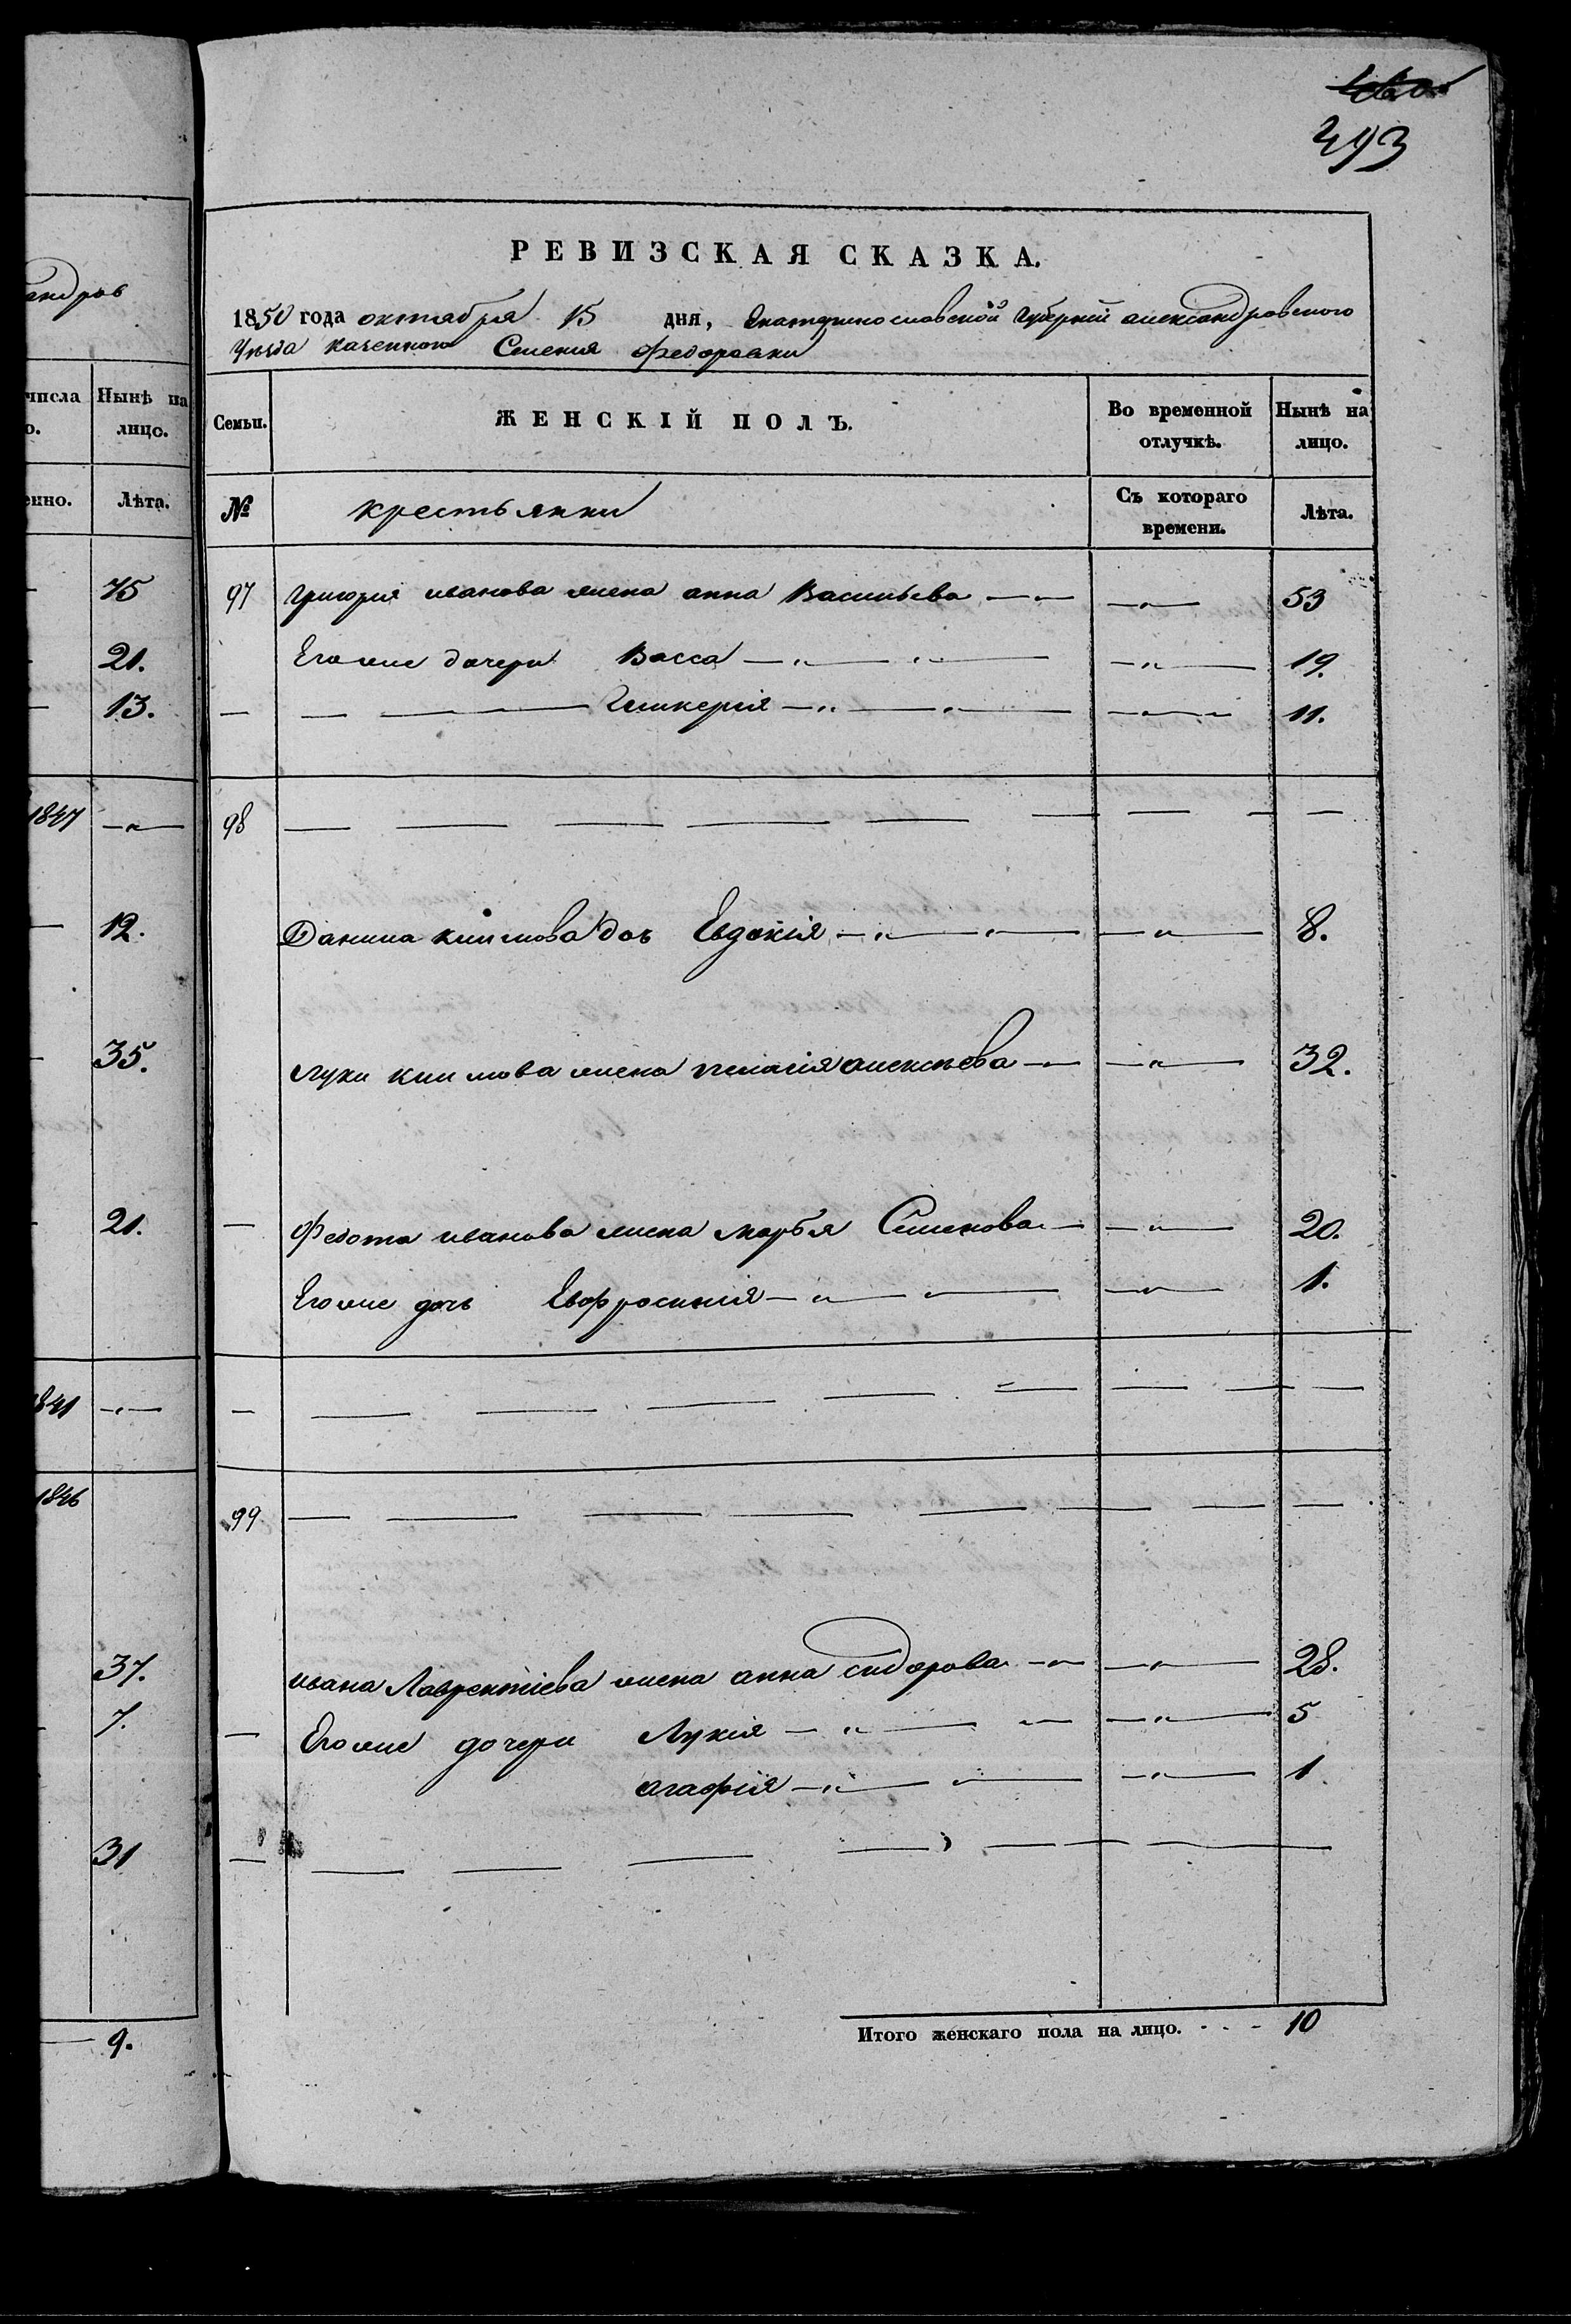 493
РЕВИЗСКАЯ СКАЗКА.
1850 года октября 15 дня, Екатеринославской Губерніи александровского
Уезда казенного Селения Федоровки
Семьи. ЖЕНСКІЙ ПОЛЪ. Во временной отлучкѣ. Нынѣ на лицо.
№ крестьянки Съ котораго времени. Лѣта.
97 григория иванова жена анна Васильева — " — — " — 53
Его же дочери Васса — " — " — — " — 19.
— — — Гликерія — " — " — — " — 11.
98 — — — — — — — — —
Данила климова дочь Евдокія — " — " — — " — 8.
луки климова жена пелагія алексѣева — " — — " — 32.
— Федота иванова жена марья Семенова — — " — 20.
Его же дочь Евфросинія — " — " — — " — 1.
— — — — — — — — —
99 — — — — — — — — —
ивана Лаврентіева жена анна сидорова — " — — " — 28.
— Его же дочери Лукия — " — " — — " — 5
агафія — " — " — — " — 1
— — — — — — — —
Итого женскаго пола на лицо. - - - 10
андров
числа Нынѣ на
о. лицо.
енно. Лѣта.
— 75
— 21.
— 13.
1847 — " —
— 12.
— 35.
— 21.
1841 — " —
1846
37.
7.
31
— 9.